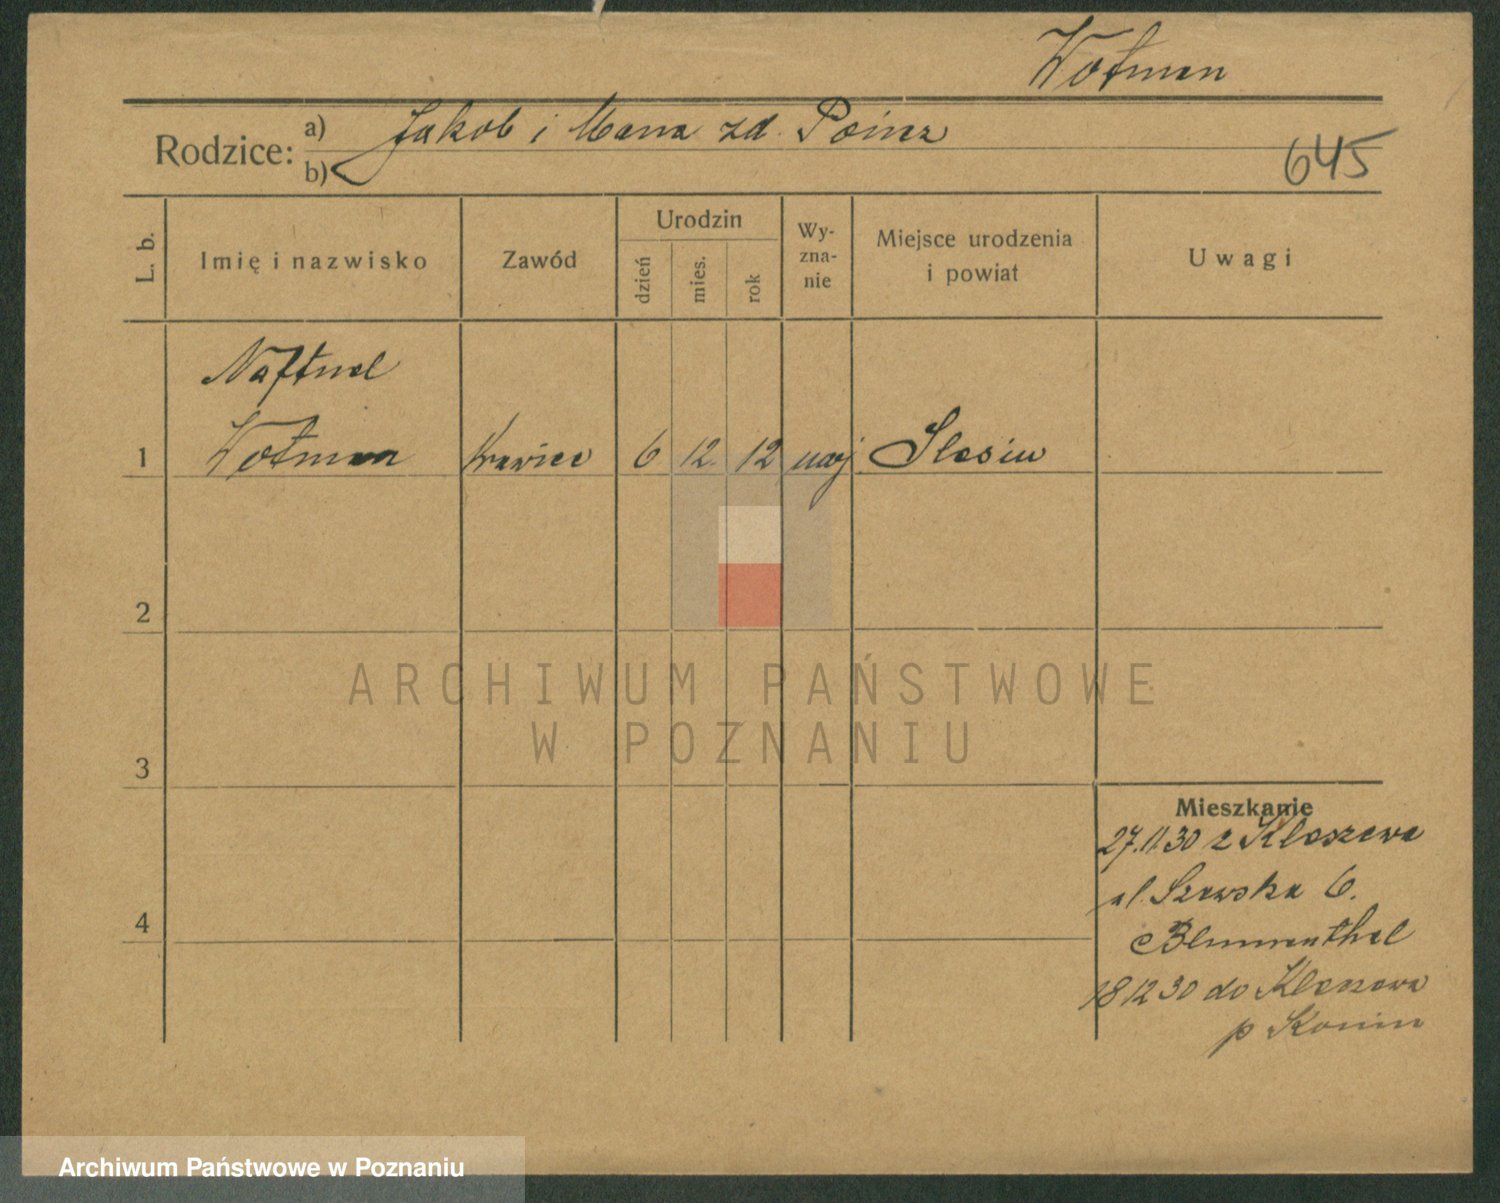 Wołman
Rodzice: a) Jakob i Mana zd. Poinez
b)
645
L. b. Imię i nazwisko Zawód Urodzin dzień mies. rok Wy-zna-nie Miejsce urodzenia i powiat Uwagi
Naftuel
1 Wołman Krawiec 6 12. 12 mojż Slesiu
2
ARCHIWUM PAŃSTWOWE
W POZNANIU
3
Mieszkanie
27.11.30 z Kleszewa
ul. Szewska 6.
4
Blumenthal
18 12 30 do Kleszewa
p Konin
Archiwum Państwowe w Poznaniu